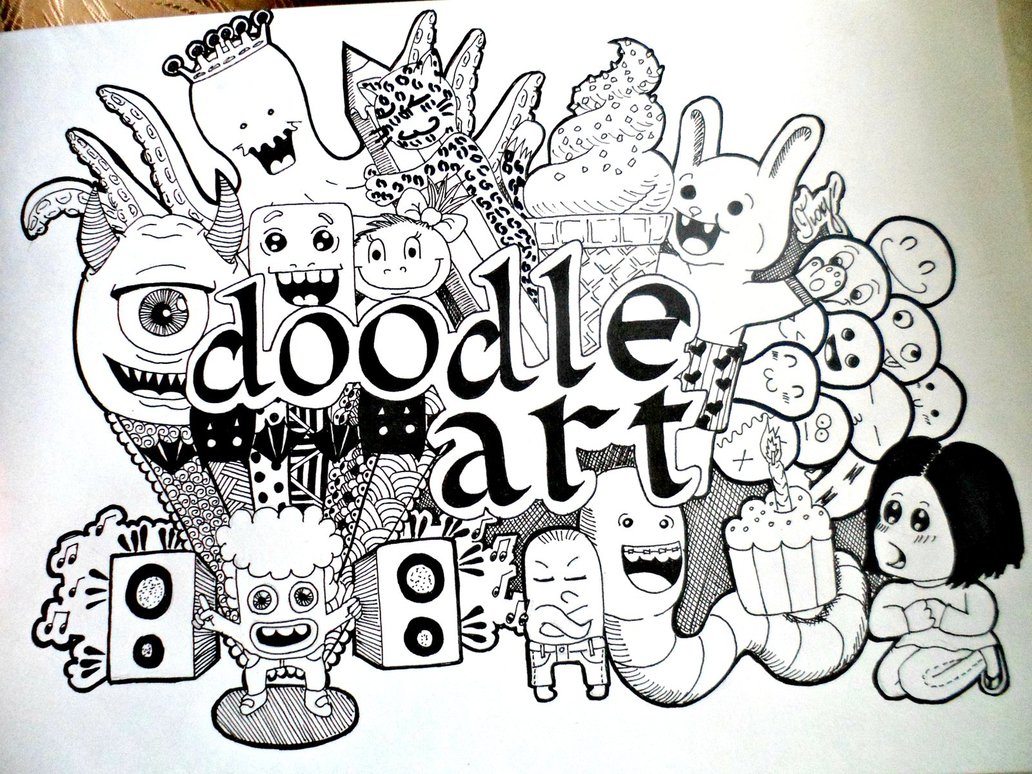 doodle
art